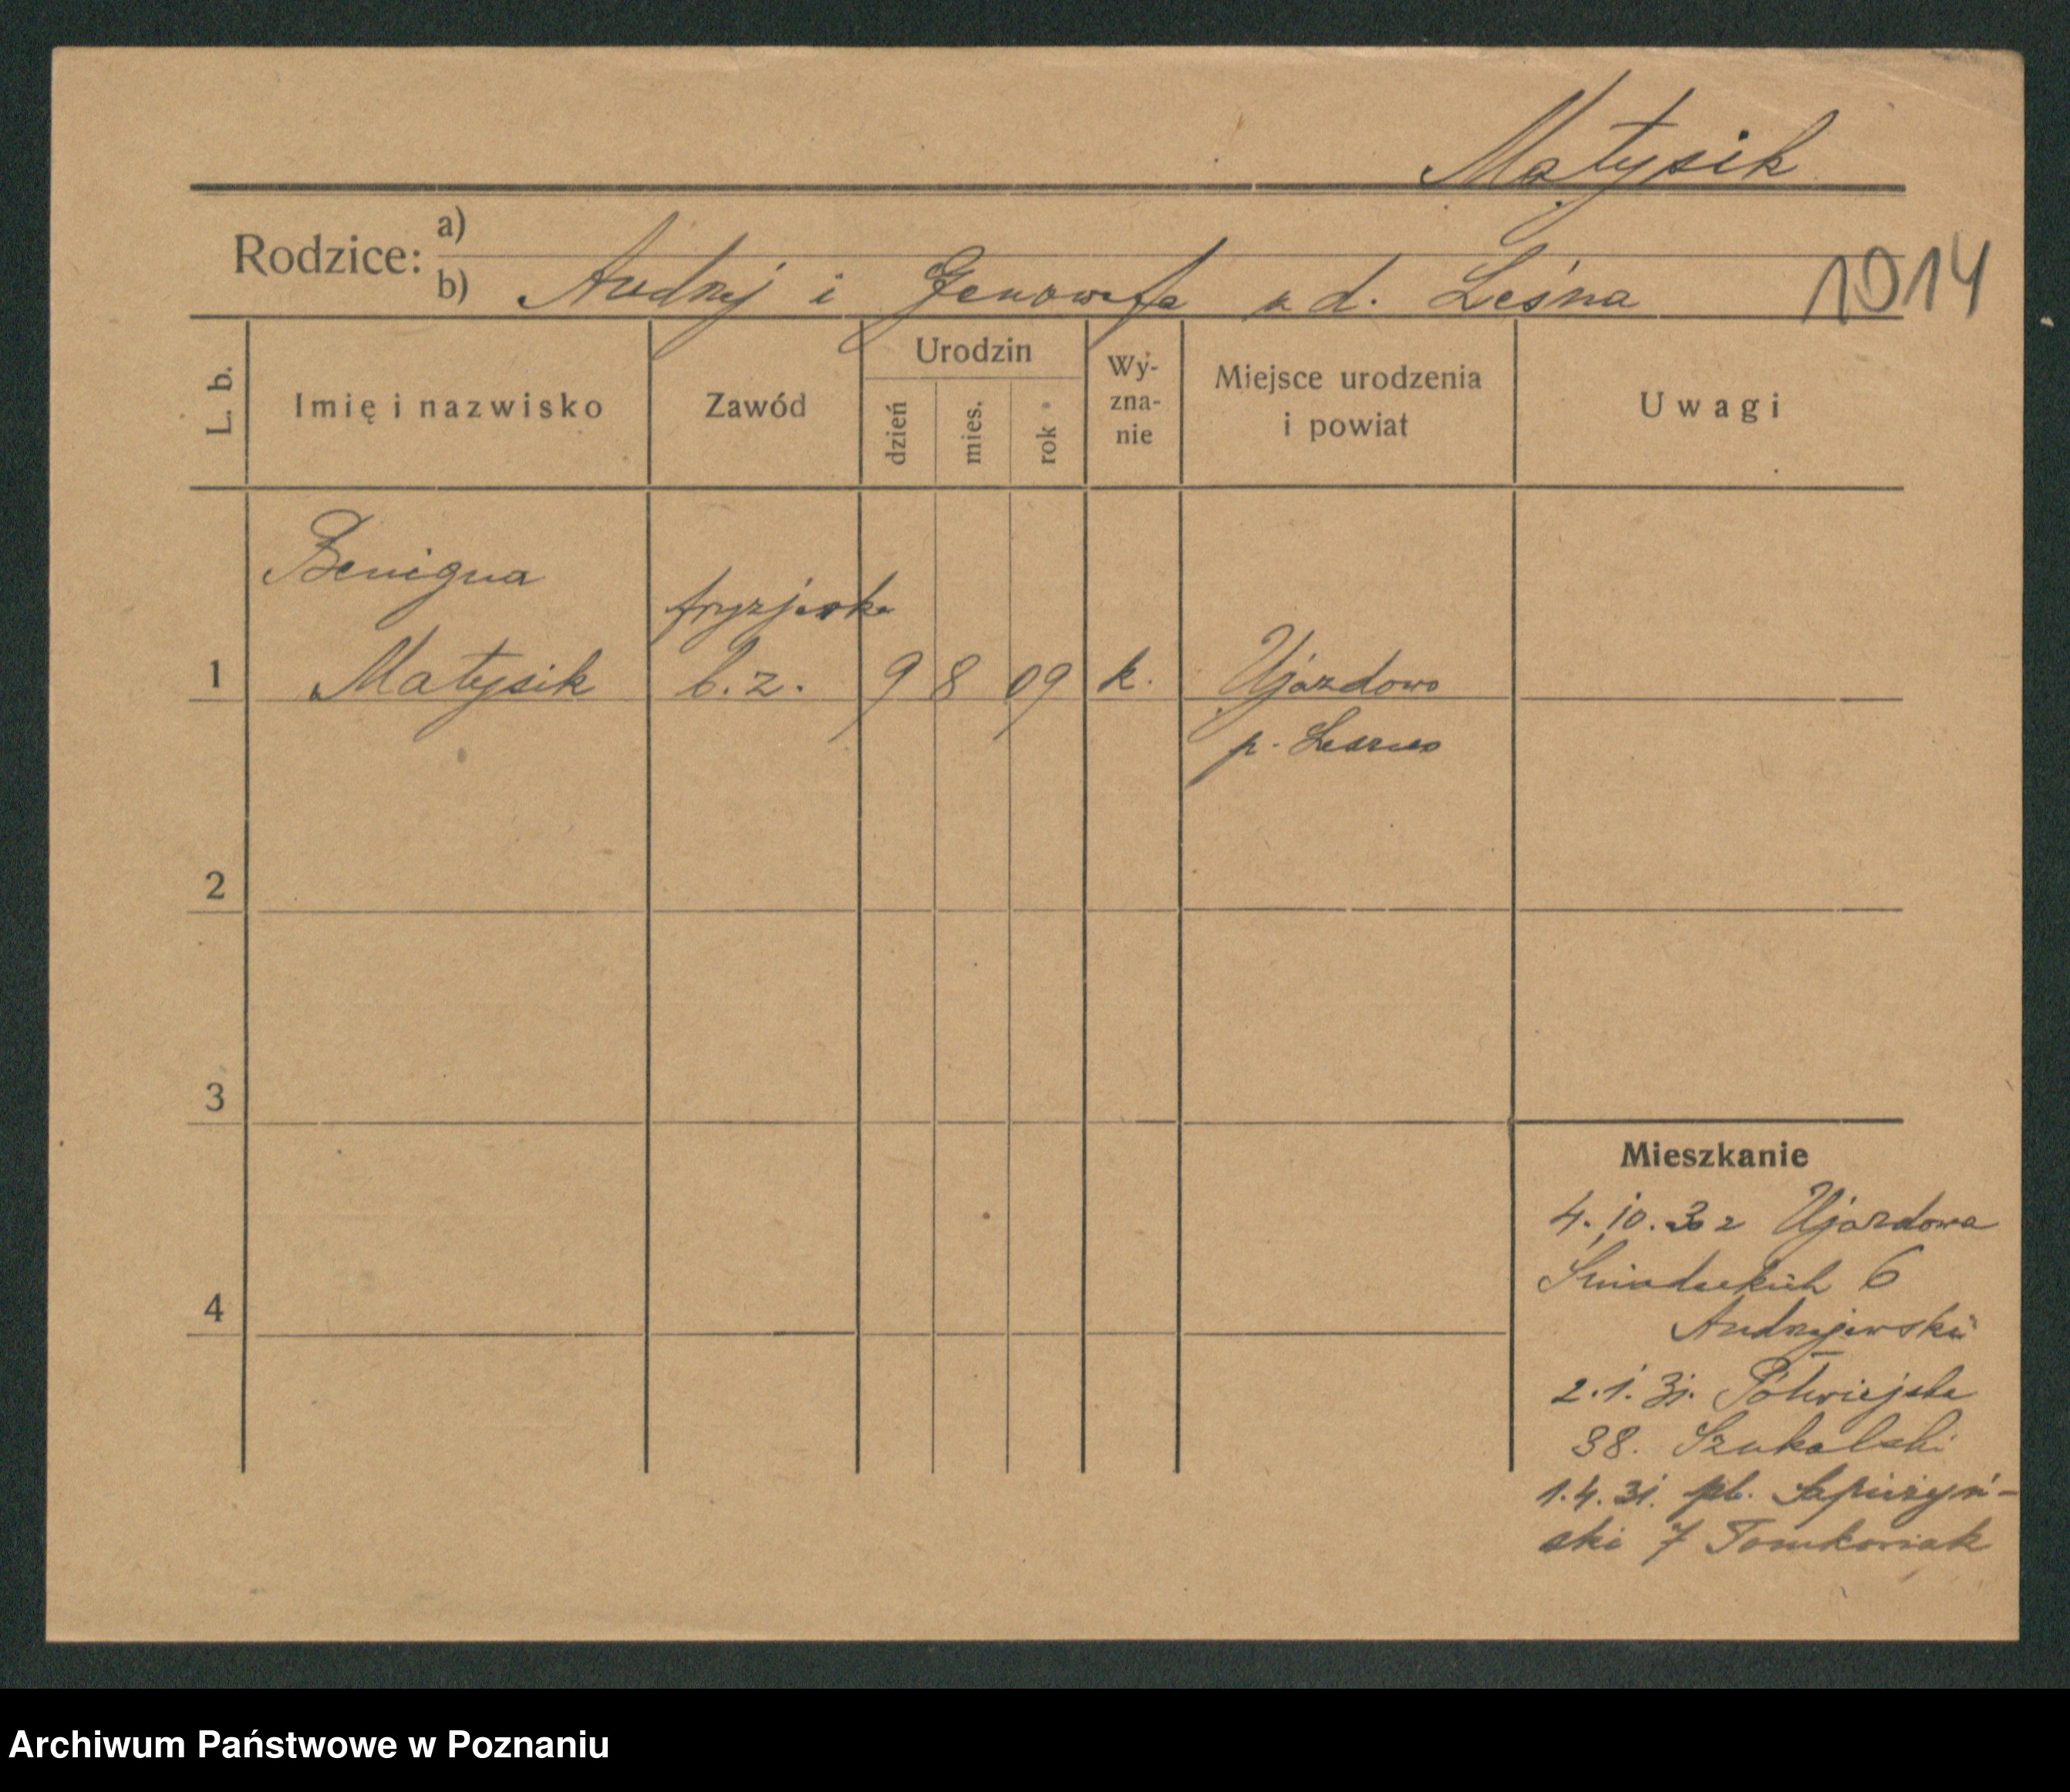 Matysik
Rodzice: a)
b) Andrzej i Genowefa u d. Leśna
1014
L. b.
Imię i nazwisko
Zawód
Urodzin
dzień
mies.
rok
Wy-
zna-
nie
Miejsce urodzenia
i powiat
Uwagi
Benigna
fryzjerka
1 Matysik b. z. 9 8 09 k. Ujazdowo
p. Leszno
2
3
4
Mieszkanie
4.10.30 z Ujazdowa
Śniadeckich 6
Andrzejewski
2.1.31. Półwiejska
38. Szukalski
1.4.31. pl. Sapieżyń-
ski 7 Tomkowiak
Archiwum Państwowe w Poznaniu